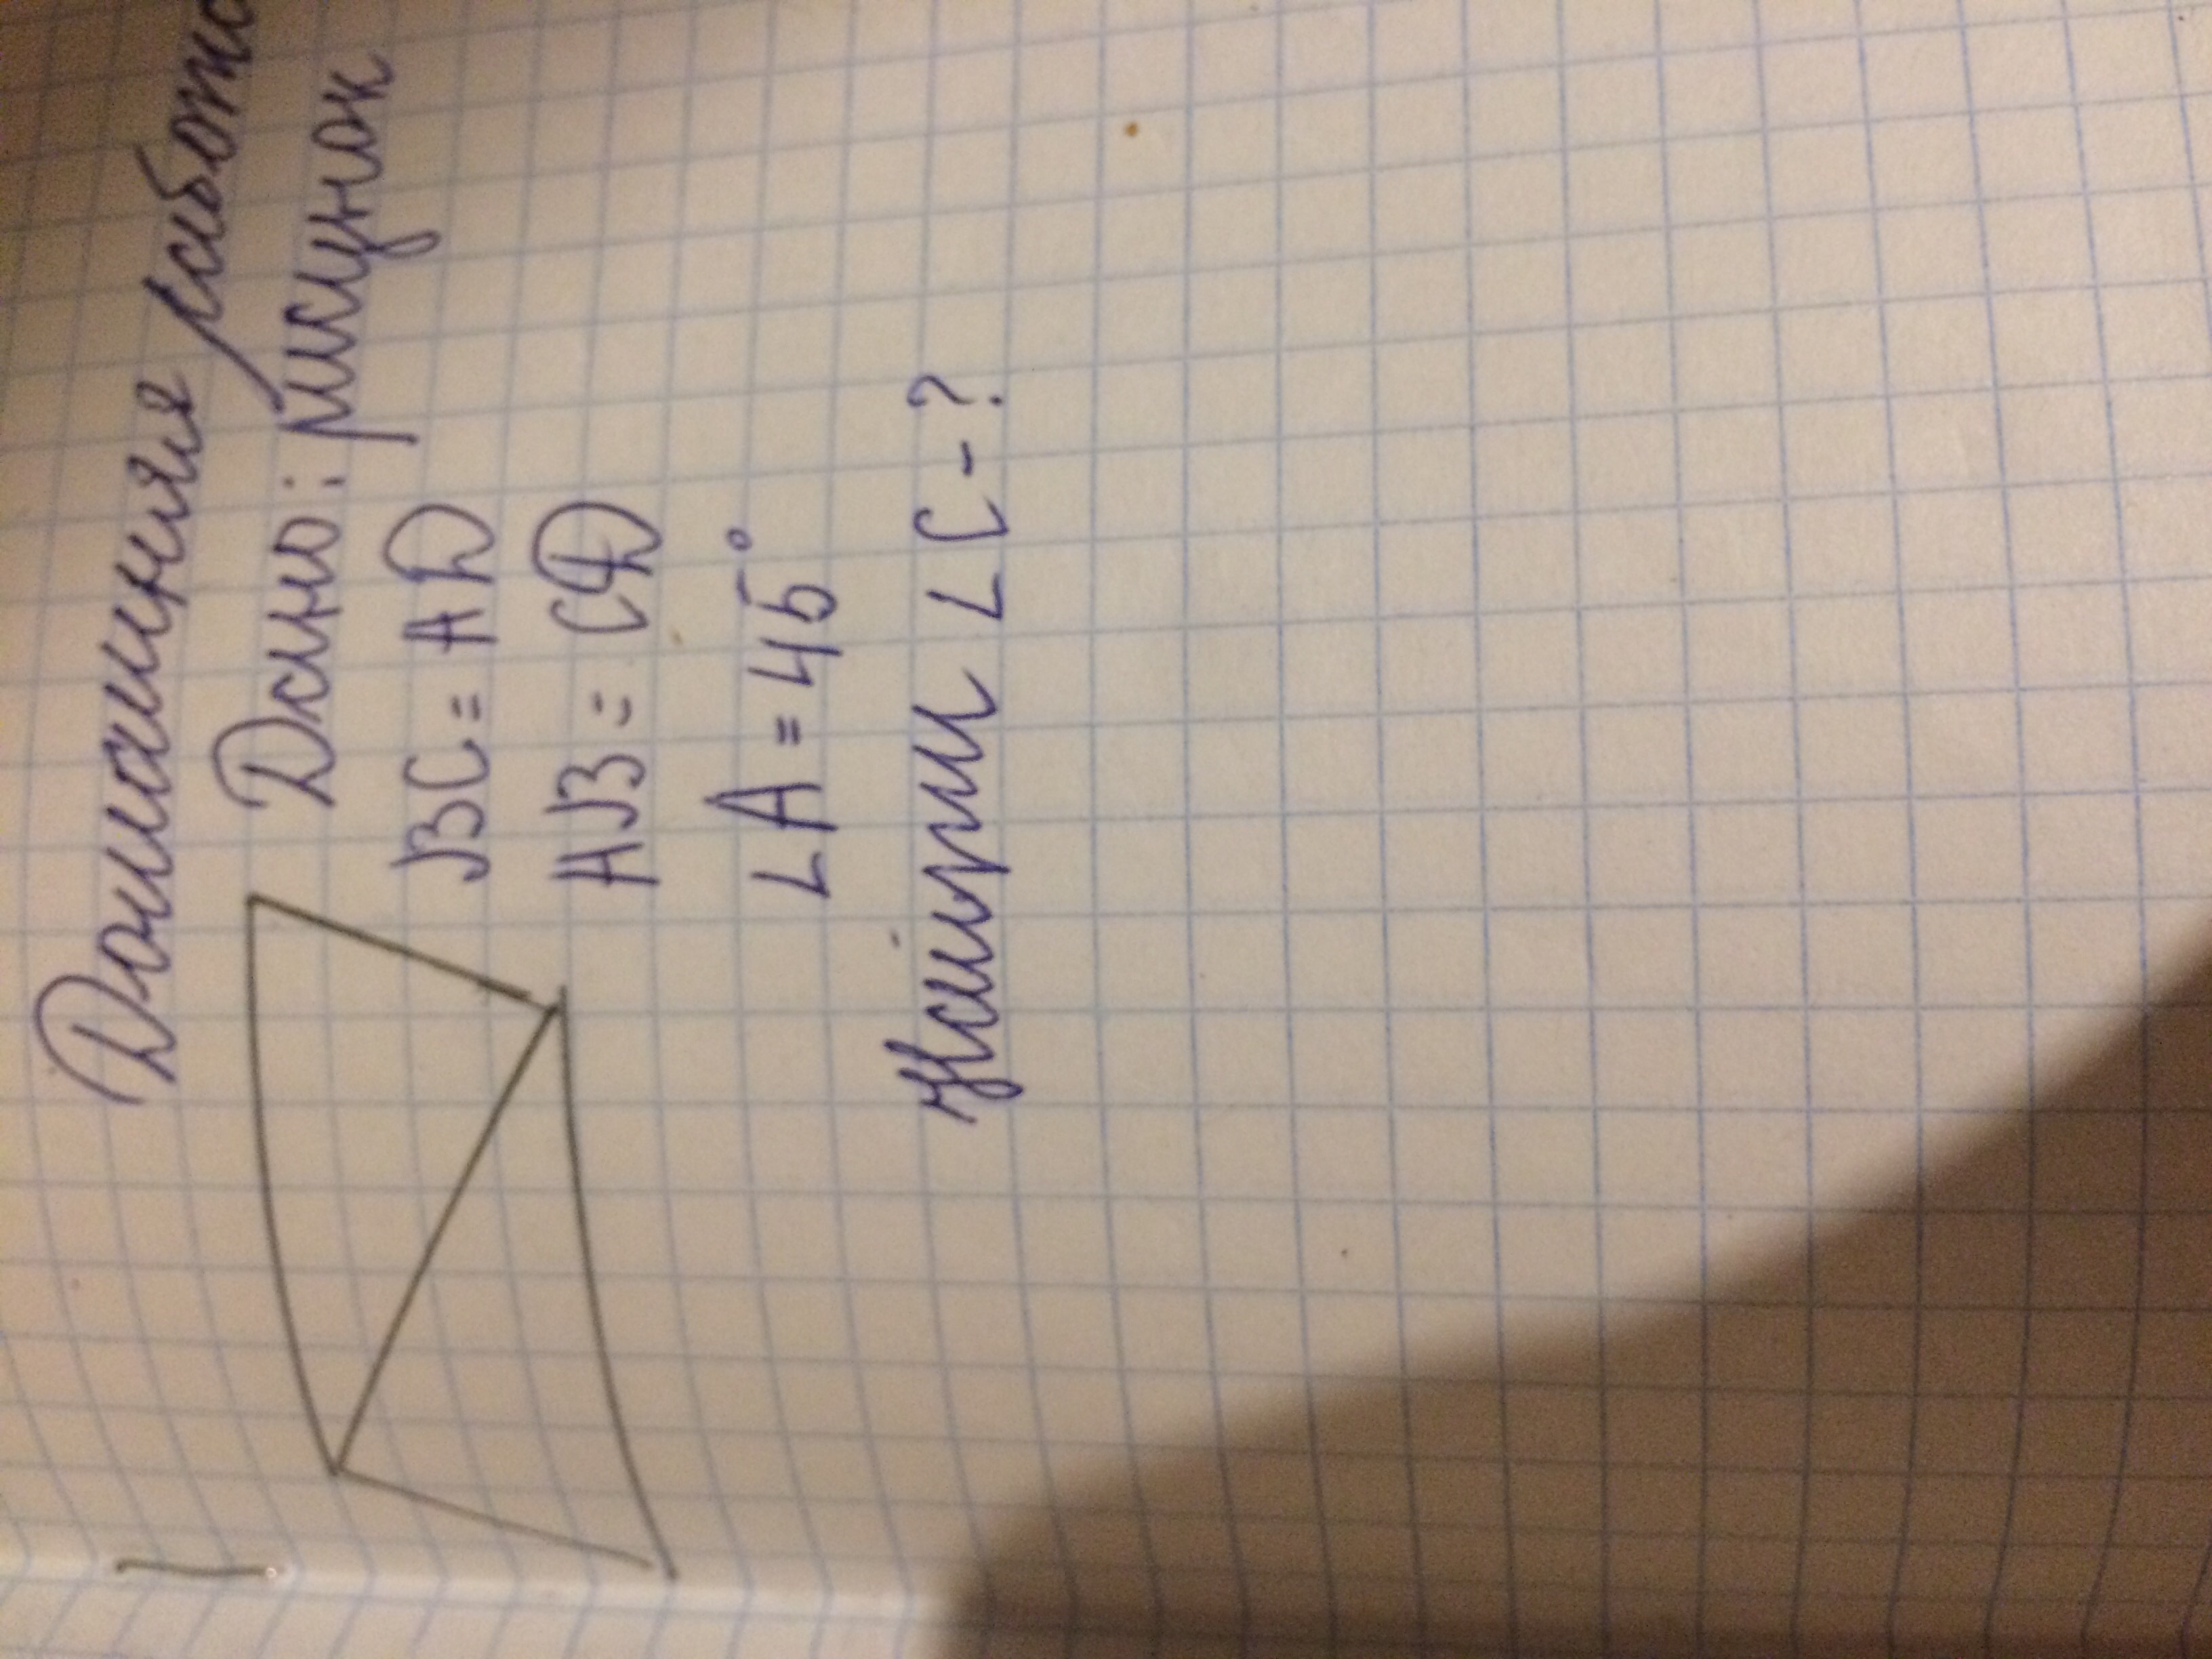 Домашняя работа
Дано: рисунок
BC = AD
AB = CD
∠A = 45°
Найти ∠C - ?